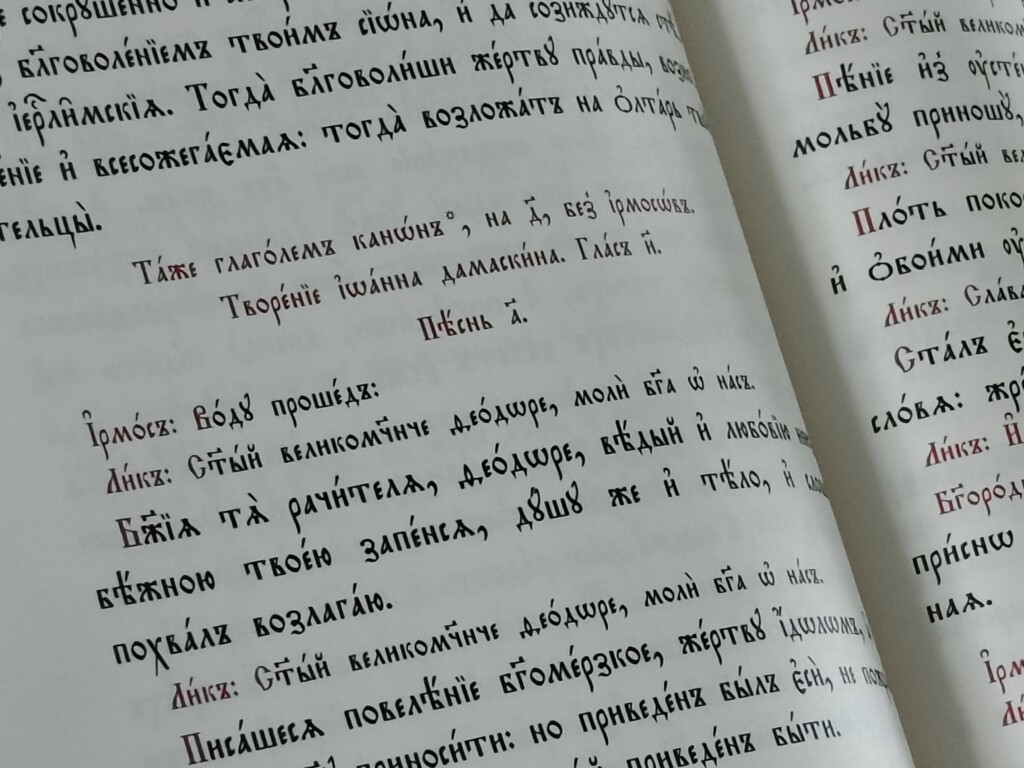 сокрꙋшенно и
бл҃говоле́нїемъ твои́мъ сїѡ́на, и҆ да сози́ждꙋтсѧ
і҆ерⷭ҇ли̑мскїѧ. Тогда̀ бл҃говоли́ши же́ртвꙋ пра́вды,
и҆ всесожега́ємаѧ: тогда̀ возложа́тъ на ѻ҆лта́рь
тельцы̀.
Та́же глаго́лемъ канѡ́нъ, на д҃, без̾ і҆рмосѡ́въ.
Творе́нїе і҆ѡа́нна дамаски́на. Гла́съ и҃.
Пѣ́снь а҃.
І҆рмо́съ: Во́дꙋ проше́дъ:
Ли́къ: Ст҃ы́й великомч҃нче ѳео́дѡре, молѝ бг҃а ѡ҆ на́съ.
Бж҃їѧ тѧ̀ рачи́телѧ, ѳео́дѡре, вѣ́дый и҆ любо́вїю
вѣ́жною твое́ю запе́нсѧ, дꙋ́шꙋ же и҆ тѣ́ло, и҆
похва́лъ возлага́ю.
Ли́къ: Ст҃ы́й великомч҃нче ѳео́дѡре, молѝ бг҃а ѡ҆ на́съ.
Писа́шесѧ повелѣ́нїе бг҃оме́рзкое, же́ртвꙋ і҆́дѡлѡмъ,
приноси́ти: но приведе́нъ бы́лъ є҆сѝ, не
приведе́нъ бы́ти.
І҆рмо́съ:
Ли́къ: Ст҃ы́й
Пѣ́нїе и҆з̾
мольбꙋ̀ приношꙋ̀,
Ли́къ: Ст҃ы́й
Пло́ть
и҆ ѻ҆бои́ми
Ли́къ: Сла́ва
Ста́лъ є҆
сло́вѧ:
Ли́къ: И҆
Бг҃оро́
при́снѡ
наѧ.
Ли́къ: